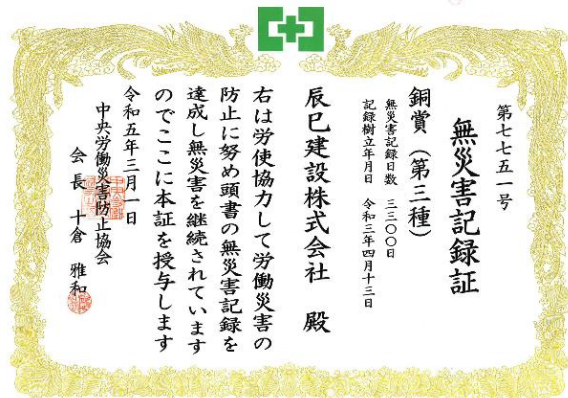 第七七五一号
無災害記録証
銅賞（第三種）
無災害記録日数　三三〇〇日
記録樹立年月日　令和三年四月十三日
辰巳建設株式会社　殿
右は労使協力して労働災害の
防止に努め頭書の無災害記録を
達成し無災害を継続されています
のでここに本証を授与します
令和五年三月一日
中央労働災害防止協会
会長　十倉　雅和